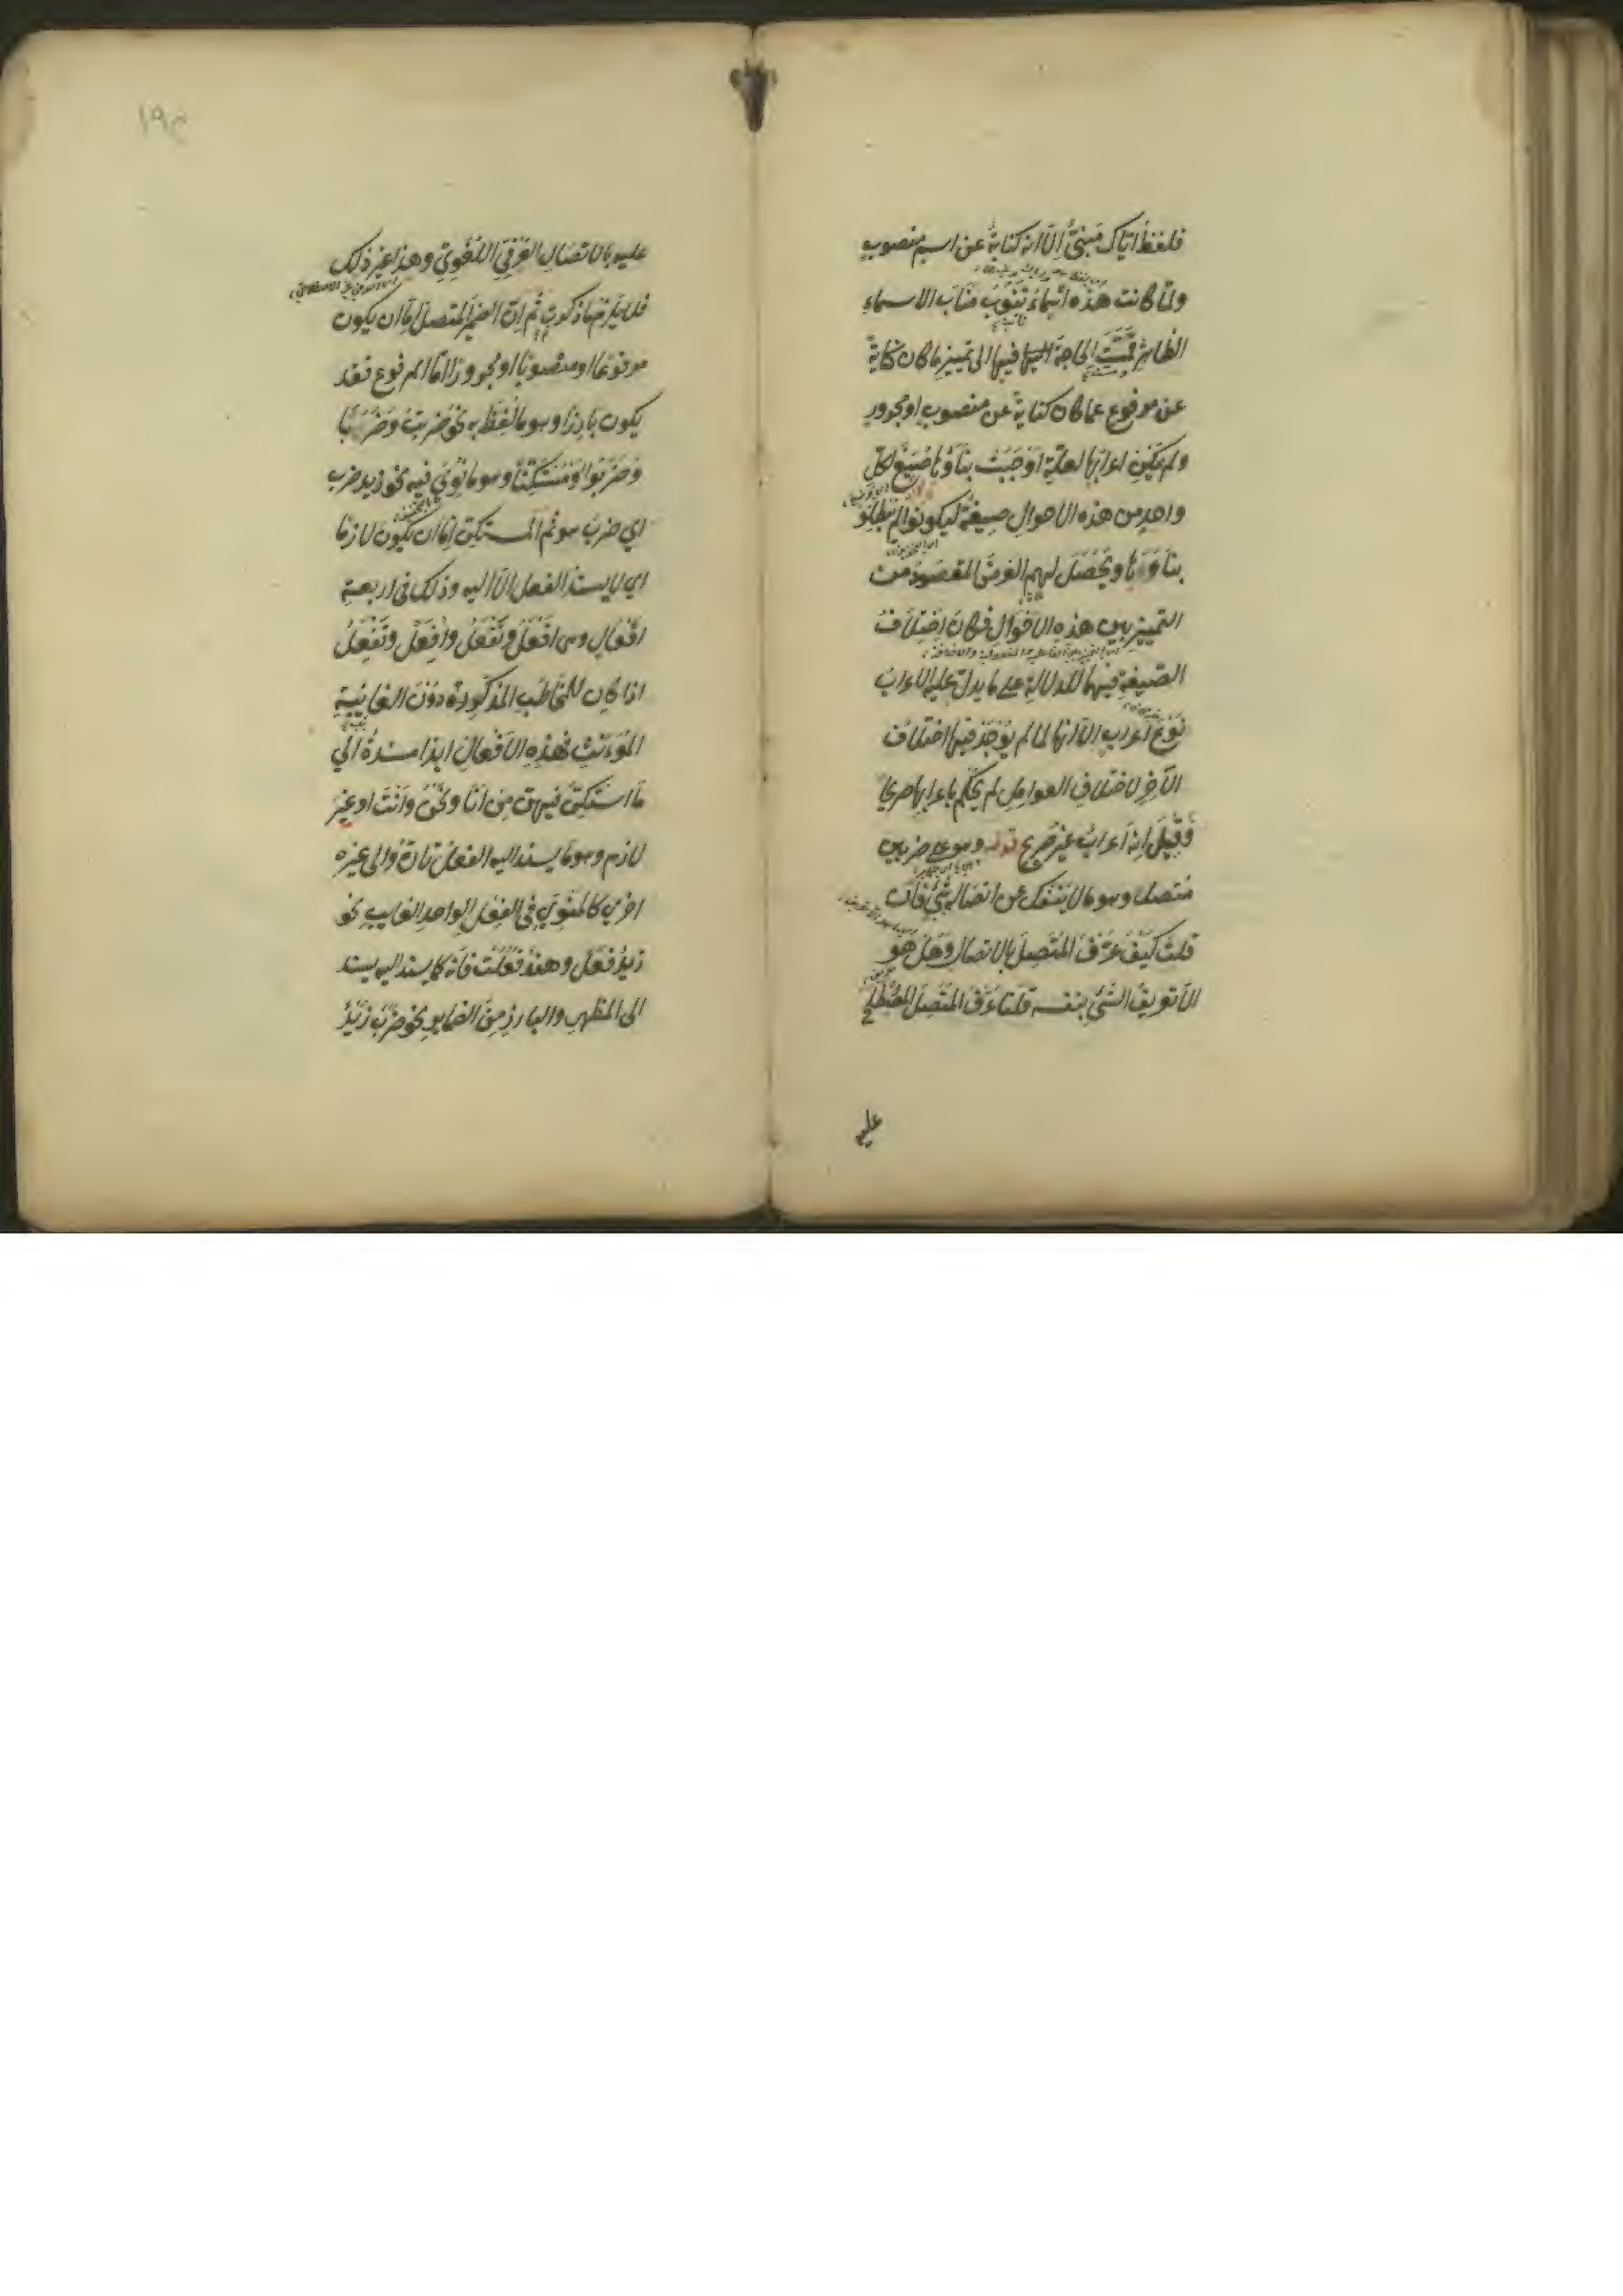 فلفظ اياك مبنيّ الّا انه كناية عن اسم منصوب
ولمّا كانت هذه اسماءً تنوب مناب الاسماء
الظاهرة مسّت الحاجة فيها الى تمييز ما كان كناية
عن مرفوع عما كان كناية عن منصوب او مجرور
ولم يكن اعرابها لعلّة اوجبت بناؤها صيغ لكل
واحد من هذه الاحوال صيغة ليكونوا لم يبطلو
بناؤها ويحصل لهم الغرض المقصود من
التمييز بين هذه الاحوال فكان اختلاف
الصيغة فيها للدلالة على ما يدل عليه الاعراب
نوع اعراب الّا انها لما لم يوجد فيها اختلاف
الآخر لاختلاف العوامل لم يحكم باعرابها صريحا
وقيل انه اعراب غير صريح قوله وهو على ضربين
متصل وهو ما لا ينفك عن اتصاله بشئ فان
قلت كيف عرّف المتصل بالاتصال وهل هو
الّا تعريف الشئ بنفسه قلنا عرّف المتصل المصطلح
عليه
١٩٢
عليه بالاتصال العرفي اللغوي وهذا غير ذلك
فلا يلزم ما ذكرت ثم ان الضمير المتصل امّا ان يكون
مرفوعا او منصوبا او مجرورا امّا المرفوع فقد
يكون بارزا وهو ما لفظ به نحو ضربت وضربنا
وضربوا او مستكنّا وهو ما نوي فيه نحو زيد ضرب
اي ضرب هو ثم المستكن امّا ان يكون لازما
اي لا يسند الفعل الّا اليه وذلك في اربعة
افعال وهي افعل ونفعل وافعل وتفعل
اذا كان للمخاطب المذكور دون الغائبة
المؤنث فهذه الافعال ابدا مسندة الى
ما استكنّ فيهن من انا ونحن وانت او غير
لازم وهو ما يسند اليه الفعل تارة والى غيره
اخرى كالمنوي في الفعل الواحد الغايب نحو
زيد فعل وهند فعلت فانه كما يسند اليه يسند
الى المظهر والبارز من الضماير نحو ضرب زيد